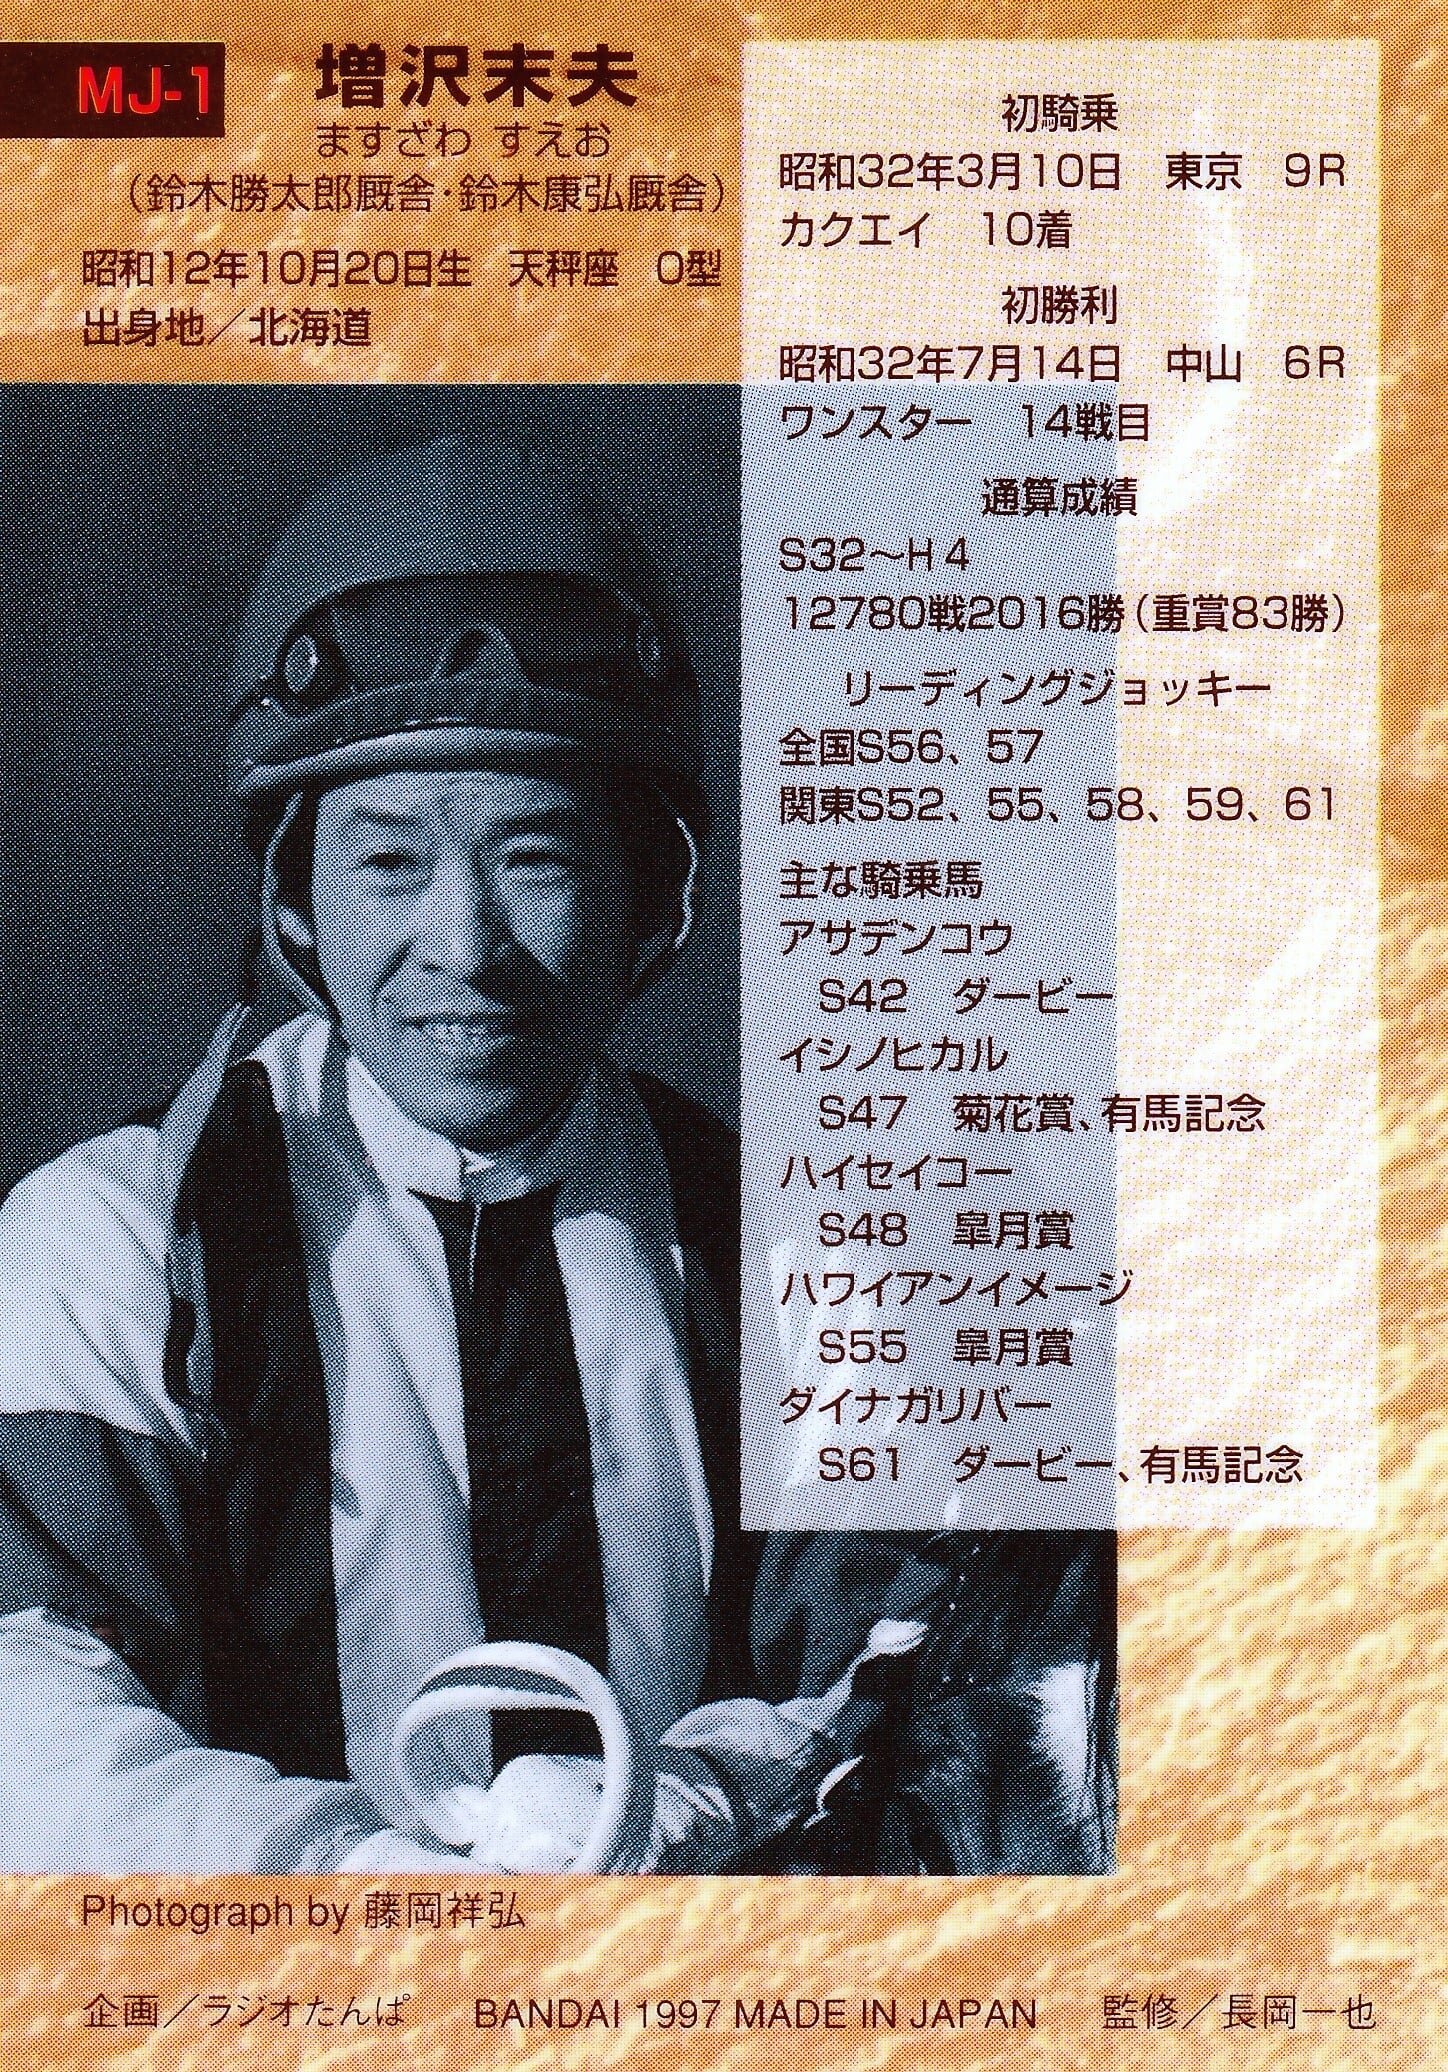 MJ-1
増沢末夫
ますざわ すえお
（鈴木勝太郎厩舎・鈴木康弘厩舎）
昭和12年10月20日生　天秤座　O型
出身地／北海道
初騎乗
昭和32年3月10日　東京　9R
カクエイ　10着
初勝利
昭和32年7月14日　中山　6R
ワンスター　14戦目
通算成績
S32〜H4
12780戦2016勝（重賞83勝）
リーディングジョッキー
全国S56、57
関東S52、55、58、59、61
主な騎乗馬
アサデンコウ
S42　ダービー
イシノヒカル
S47　菊花賞、有馬記念
ハイセイコー
S48　皐月賞
ハワイアンイメージ
S55　皐月賞
ダイナガリバー
S61　ダービー、有馬記念
Photograph by 藤岡祥弘
企画／ラジオたんぱ　BANDAI 1997 MADE IN JAPAN　監修／長岡一也